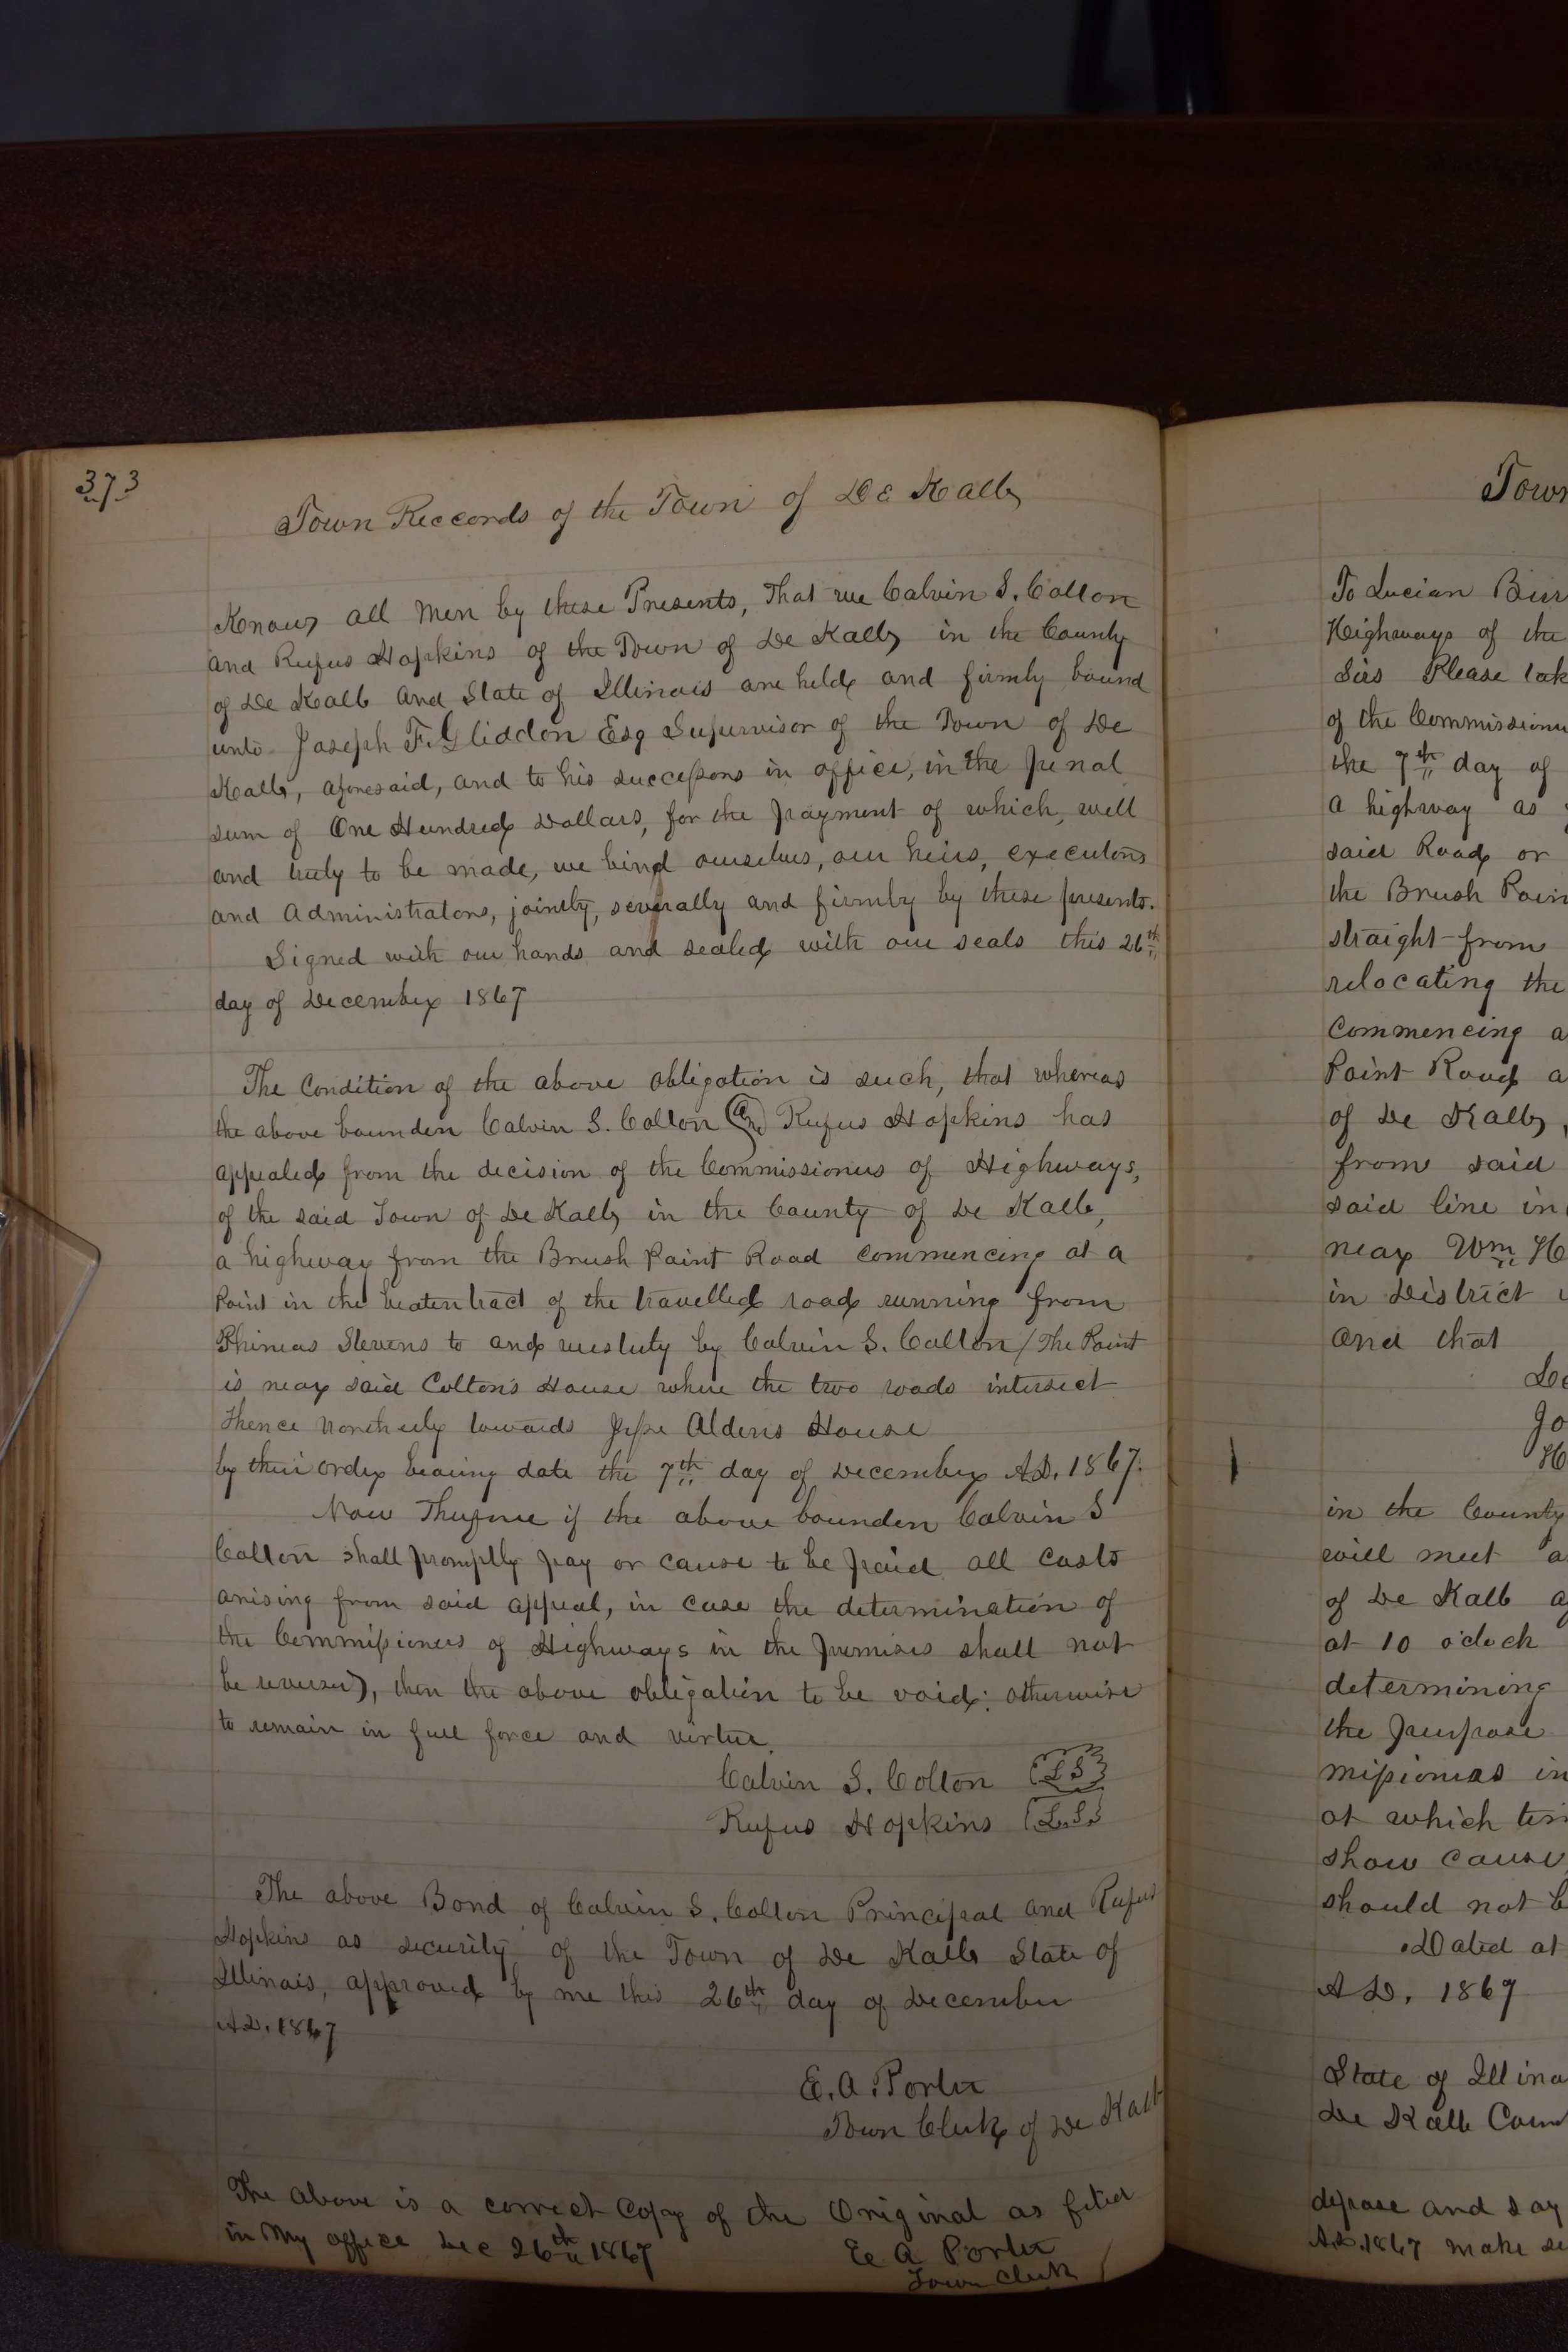 373
Town Reccords of the Town of De Kalb
Know all Men by these Presents, That we Calvin S. Colton
and Rufus Hopkins of the Town of De Kalb in the County
of De Kalb and State of Illinois are held and firmly bound
unto Joseph F. Gliddon Esq Supervisor of the Town of De
Kalb, aforesaid, and to his successors in office, in the penal
sum of One Hundred Dollars, for the payment of which, well
and truly to be made, we bind ourselves, our heirs, executors
and Administrators, jointly, severally and firmly by these presents.
Signed with our hands and sealed with our seals this 26th
day of December 1867
The Condition of the above obligation is such, that whereas
the above bounden Calvin S. Colton and Rufus Hopkins has
appealed from the decision of the Commissioners of Highways,
of the said Town of De Kalb in the County of De Kalb,
a highway from the Brush Point Road commencing at a
Point in the beaten tract of the travelled road running from
Phineas Stevens to and westerly by Calvin S. Colton / The Point
is near said Colton's House where the two roads intersect
Thence northerly towards Jesse Aldens House
by their order bearing date the 7th day of December A.D. 1867.
Now Therefore if the above bounden Calvin S
Colton shall promptly pay or cause to be paid all costs
arising from said appeal, in case the determination of
the Commissioners of Highways in the premises shall not
be reversed, then the above obligation to be void: otherwise
to remain in full force and virtue.
Calvin S. Colton (LS)
Rufus Hopkins (L.S.)
The above Bond of Calvin S. Colton Principal and Rufus
Hopkins as security of the Town of De Kalb State of
Illinois, approved by me this 26th day of December
A.D. 1867
E. A. Porter
Town Clerk of De Kalb
The above is a correct Copy of the Original as filed
in My office Dec 26th 1867
E. A Porter
Town Clerk
Town
To Lucian Bur
Highways of the
Sirs Please tak
of the Commissione
the 7th day of
a highway as
said Road or
the Brush Poin
straight from
relocating the
Commencing a
Point Road a
of De Kalb,
from said
said line in
near Wm H
in District
and that
De
Jo
H
in the County
will meet a
of De Kalb a
at 10 o'clock
determining
the purpose
missioners in
at which tim
show cause
should not b
Dated at
A D. 1867
State of Illino
De Kalb Coun
depose and say
A.D. 1867 make se